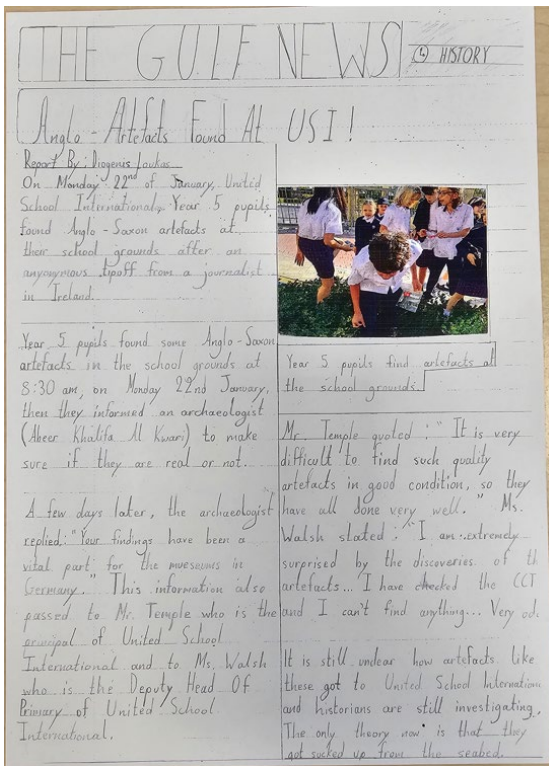 THE GULF NEWS
④ HISTORY
Anglo-Artefacts Found At USI!
Report By: Diogenis Loukas
On Monday 22nd of January, United
School International, Year 5 pupils
found Anglo-Saxon artefacts at
their school grounds after an
anyonymous tipoff from a journalist
in Ireland.
Year 5 pupils found some Anglo-Saxon
artefacts in the school grounds at
8:30 am, on Monday 22nd January,
then they informed an archaeologist
(Abeer Khalifa Al Kwari) to make
sure if they are real or not.
A few days later, the archaeologist
replied: "Your findings have been a
vital part for the museuems in
Germany." This information also
passed to Mr. Temple who is the
principal of United School
International and to Ms. Walsh
who is the Deputy Head Of
Primary of United School
International.
Year 5 pupils find artefacts at
the school grounds.
Mr. Temple quoted: "It is very
difficult to find such quality
artefacts in good condition, so they
have all done very well." Ms.
Walsh stated: "I am extremely
surprised by the discoveries of th
artefacts... I have checked the CCT
and I can't find anything... Very od
It is still unclear how artefacts like
these got to United School Internation
and historians are still investigating.
The only theory now is that they
got sucked up from the seabed.